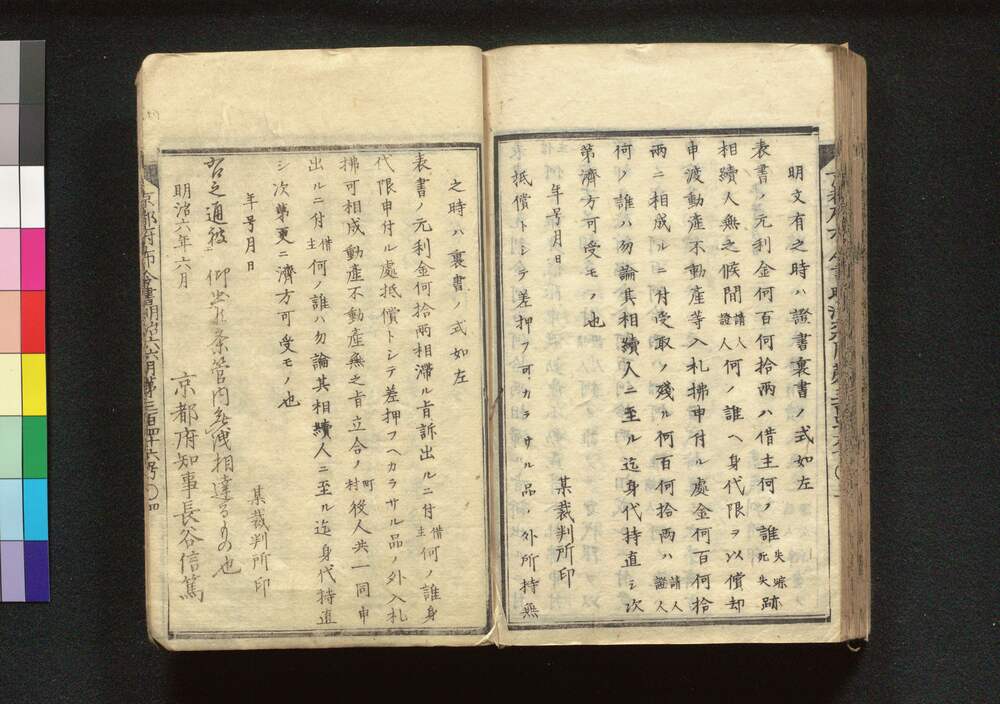 明文有之時ハ證書裏書ノ式如左
表書ノ元利金何百何拾兩ハ借主何ノ誰失踪死失跡
相續人無之候間請人證人何ノ誰ヘ身代限ヲ以償却
申渡動產不動產等入札拂申付ル處金何百何拾
兩ニ相成ルニ付受取ノ殘ル何百何拾兩ハ請人證人
何ノ誰ハ勿論其相續人ニ至ル迄身代持直シ次
第濟方可受モノ也
年号月日
某裁判所印
抵償トシテ差押フ可カラサル品ノ外所持無
之時ハ裏書ノ式如左
表書ノ元利金何拾兩相滯ル旨訴出ルニ付借主何ノ誰身
代限申付ル處抵償トシテ差押フヘカラサル品ノ外入札
拂可相成動產不動產無之旨立合ノ町村役人共一同申
出ルニ付借主何ノ誰ハ勿論其相續人ニ至ル迄身代持直
シ次第更ニ濟方可受モノ也
年号月日
某裁判所印
右之通被仰出候条管内無洩相達るもの也
明治六年六月
京都府知事長谷信篤
京都府布令書明治六六月第三百四十六号〇四